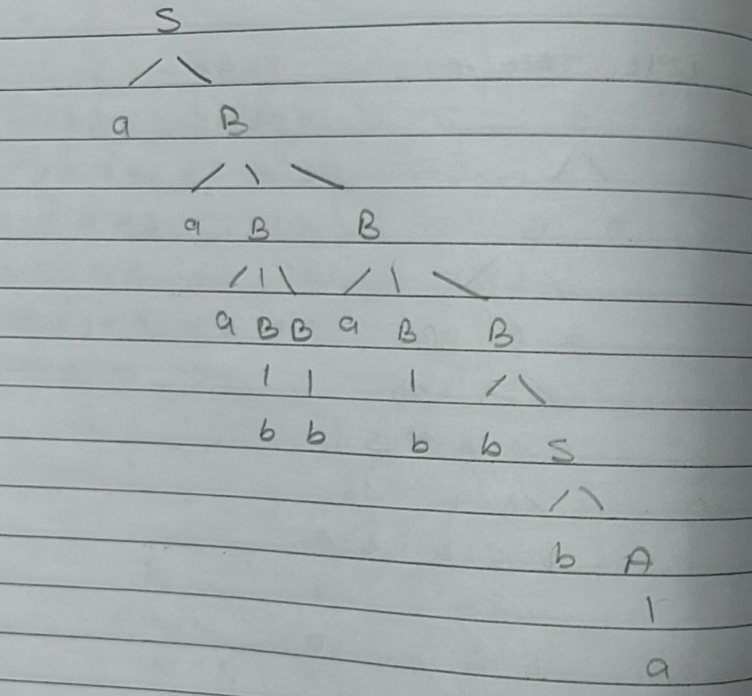 S
a B
a B B
a B B a B B
b b b b S
b A
a